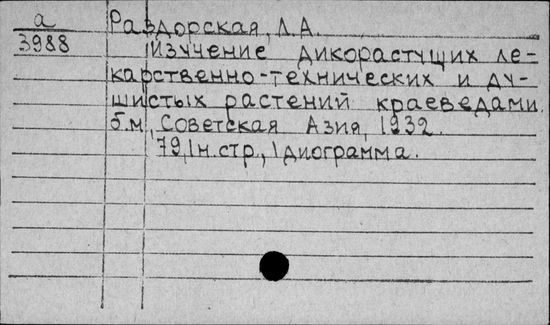 а
3988
Раздорская, Л.А.
Изучение дикорастущих ле-
карственно-технических и ду-
шистых растений краеведами.
б.м., Советская Азия, 1932.
79, 1 н. стр., 1 диограмма.